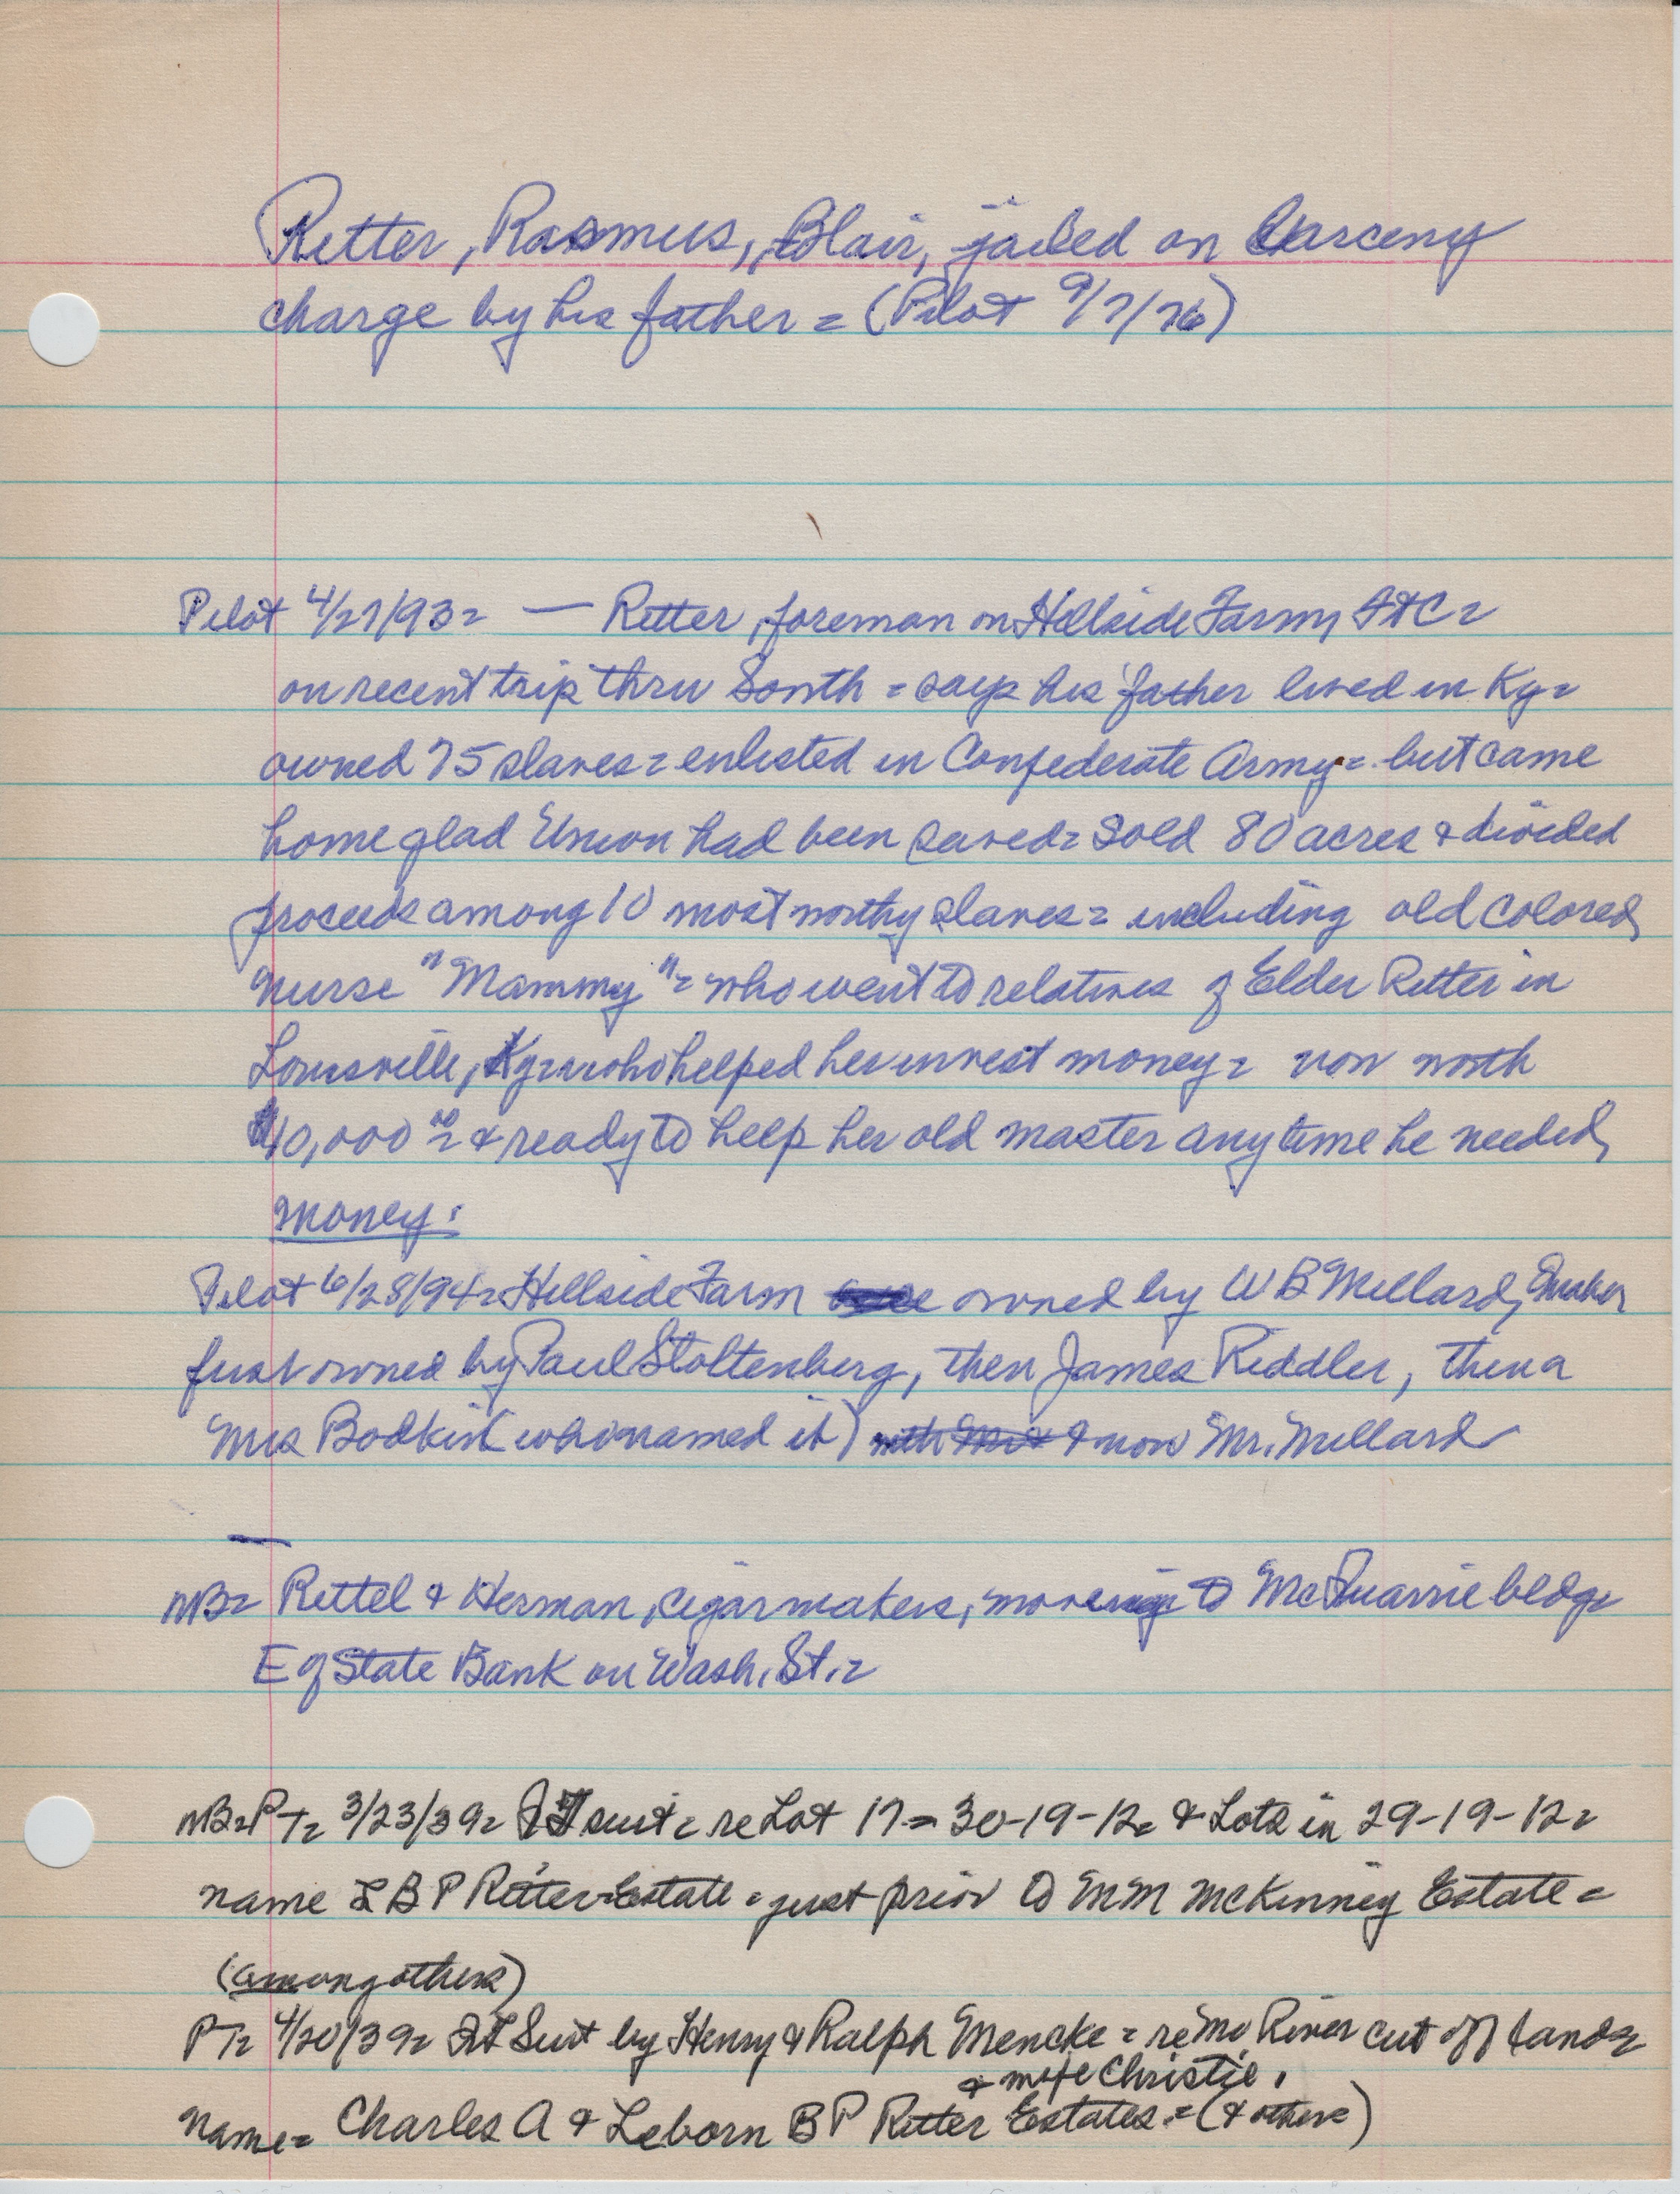 Ritter, Rasmus, Blair, jailed on larceny
charge by his father = (Pilot 9/7/76)
Pilot 4/27/93 = — Ritter, foreman on Hillside Farm, FtC =
on recent trip thru South = says his father lived in Ky =
owned 75 slaves = enlisted in Confederate Army = but came
home glad Union had been saved = Sold 80 acres & divided
proceeds among 10 most worthy slaves = including old colored
nurse "Mammy" = who went to relatives of Elder Ritter in
Louisville, Ky = who helped her invest money = now worth
$10,000 00 = & ready to help her old master anytime he needed
money:
Pilot 6/28/94 = Hillside Farm owned by W B Millard, Omaha
first owned by Paul Stoltenberg, then James Riddler, then a
Mrs Bodkin (who named it) & now Mr. Millard
NB = Rettel & Herman, cigar makers, moving to McQuarrie bldg
E of State Bank on Wash. St. =
NB = PT = 3/23/39 = QT suit = re Lot 17 = 30-19-12 = & Lots in 29-19-12 =
name L B P Ritter Estate = just prior to M M McKinney Estate =
(among others)
PT = 4/20/39 = QT Suit by Henry & Ralph Mencke = re Mo. River cut off lands
& wife Christie.
name = Charles A & Leborn B P Ritter Estates = (& others)